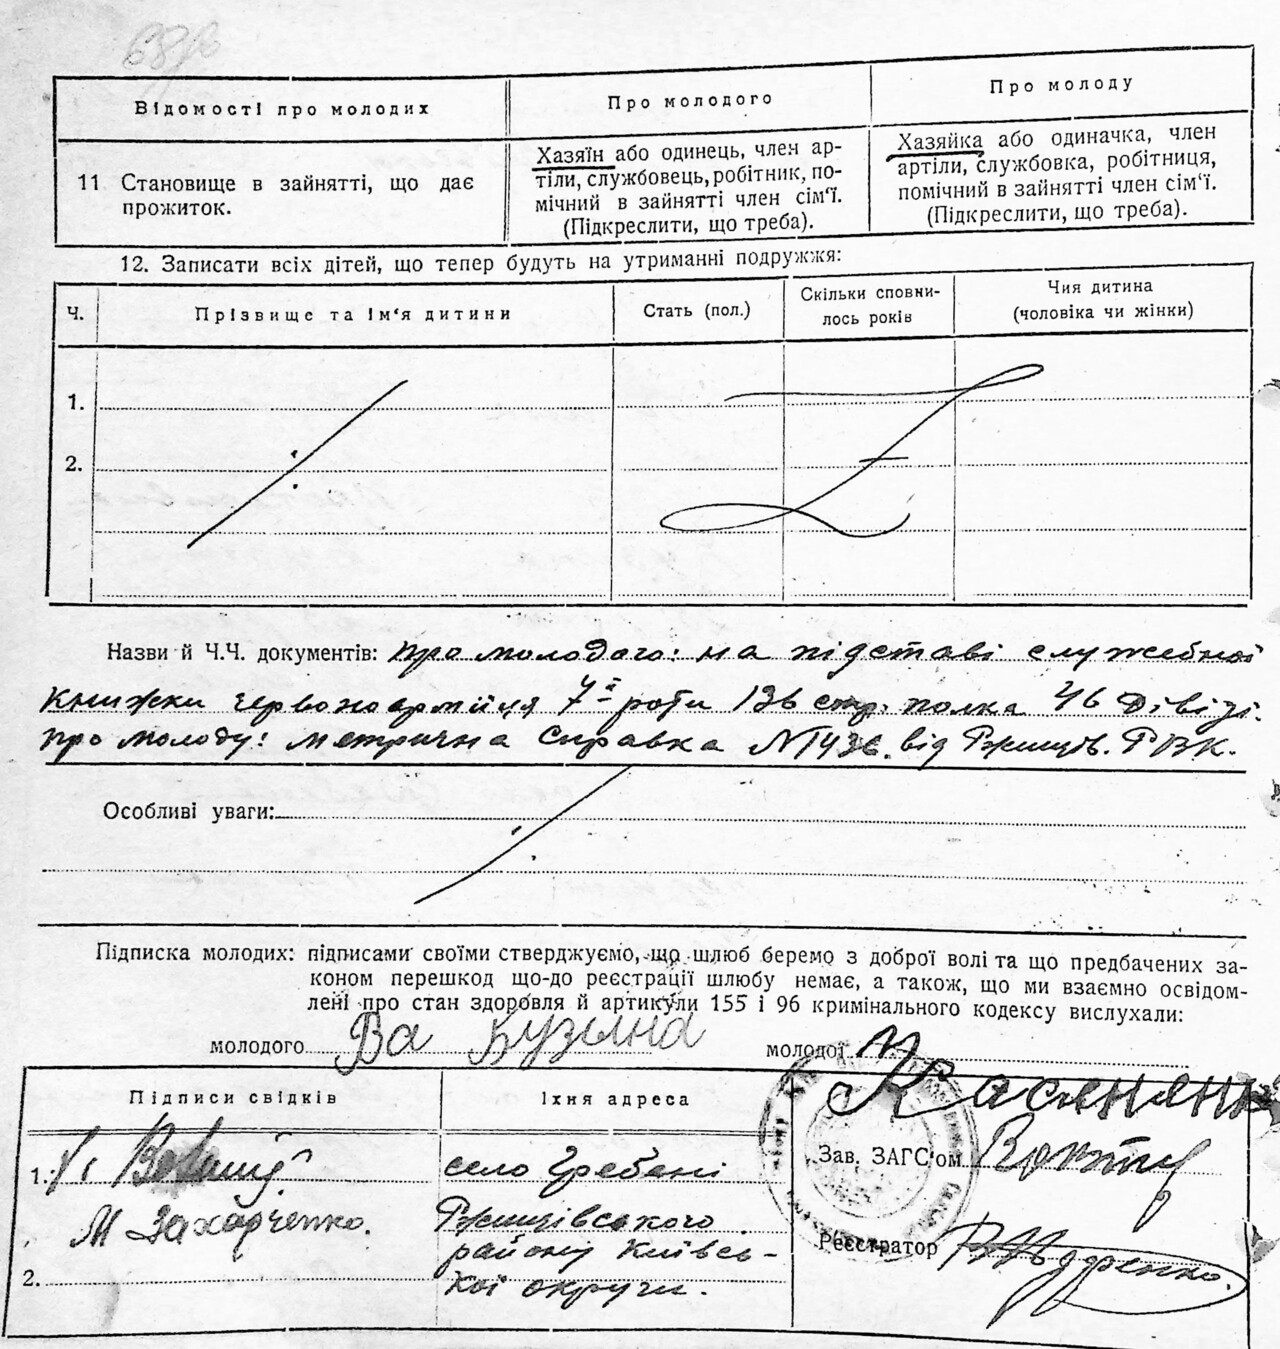 Відомості про молодих
Про молодого
Про молоду
11 Становище в зайнятті, що дає
прожиток.
Хазяїн або одинець, член ар-
тіли, службовець, робітник, по-
мічний в зайнятті член сім'ї.
(Підкреслити, що треба).
Хазяйка або одиначка, член
артіли, службовка, робітниця,
помічний в зайнятті член сім'ї.
(Підкреслити, що треба).
12. Записати всіх дітей, що тепер будуть на утриманні подружжя:
Ч.
Прізвище та ім'я дитини
Стать (пол.)
Скільки сповни-
лось років
Чия дитина
(чоловіка чи жінки)
1.
2.
Назви й Ч.Ч. документів: про молодого: на підставі служебної
книжки червоноармійця 7ї роти 136 стр. полка 46 Дівізі.
про молоду: метрична справка № 1436. від Ржищів. РВК.
Особливі уваги:
Підписка молодих: підписами своїми стверджуємо, що шлюб беремо з доброї волі та що предбачених за-
коном перешкод що-до реєстрації шлюбу немає, а також, що ми взаємно освідом-
лені про стан здоровля й артикули 155 і 96 кримінального кодексу вислухали:
молодого Ва Кузьмна
молодої
Підписи свідків
Їхня адреса
1.
М Захарченко.
2.
село Гребені
Ржищівського
району Київсь-
кої округи.
Зав. ЗАГС'ом
Реєстратор